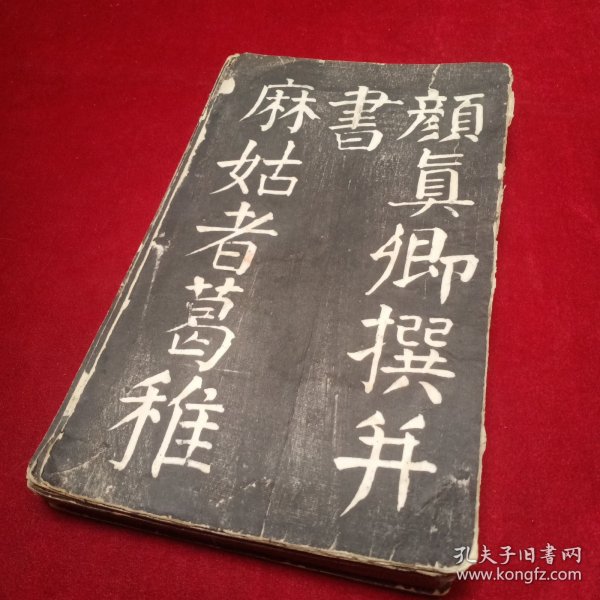 顏眞卿撰并
書
麻姑者葛稚
孔夫子旧書网
www.kongfz.com